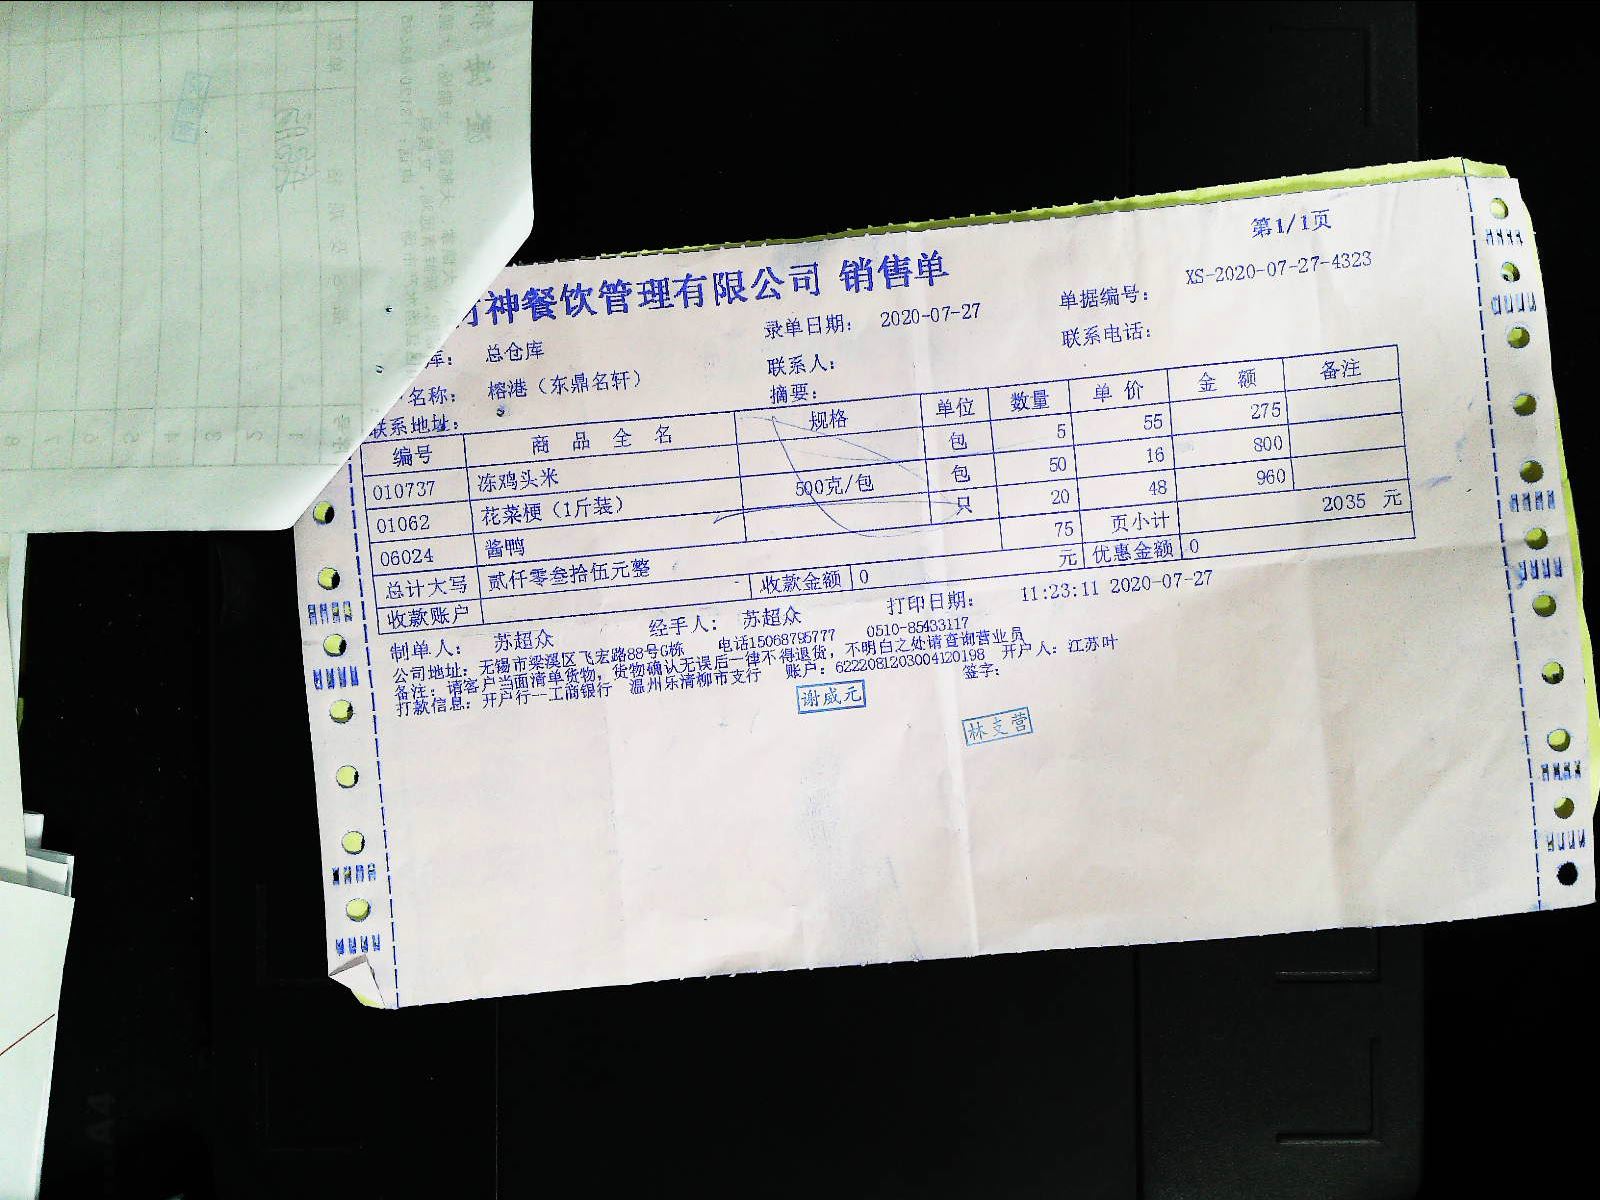 第1/1页
神餐饮管理有限公司 销售单
库： 总仓库 录单日期： 2020-07-27 单据编号： XS-2020-07-27-4323
名称： 榕港（东鼎名轩） 联系人： 联系电话：
联系地址： 摘要：
编号 商品全名 规格 单位 数量 单价 金额 备注
010737 冻鸡头米 包 5 55 275
01062 花菜梗（1斤装） 500克/包 包 50 16 800
06024 酱鸭 只 20 48 960
总计大写 贰仟零叁拾伍元整 75 页小计 2035 元
收款账户 收款金额 0 元 优惠金额 0
制单人： 苏超众 经手人： 苏超众 打印日期： 11:23:11 2020-07-27
公司地址：无锡市梁溪区飞宏路88号G栋 电话15068795777 0510-85433117
备注：请客户当面清单货物，货物确认无误后一律不得退货，不明白之处请查询营业员
打款信息：开户行--工商银行 温州乐清柳市支行 账户：6222081203004120198 开户人：江苏叶
签字：
谢威元
林支营
A4